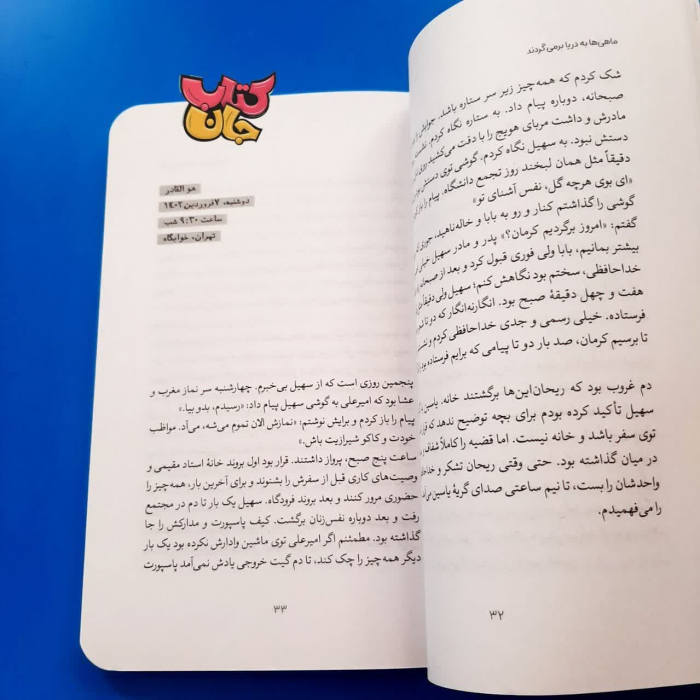 ماهی‌ها به دریا برمی‌گردند
شک کردم که همه‌چیز زیر سر ستاره باشد. جوابش را
صبحانه، دوباره پیام داد. به ستاره نگاه کردم. نشست
مادرش و داشت مربای هویج را با دقت می‌کشید
دستش نبود. به سهیل نگاه کردم. گوشی توی دستش بود
دقیقاً مثل همان لبخند روز تجمع دانشگاه. پیام را باز
«ای بوی هرچه گل، نفس آشنای تو»
گوشی را گذاشتم کنار و رو به بابا و خاله‌ناهید، جوری
گفتم: «امروز برگردیم کرمان؟» پدر و مادر سهیل خیلی
بیشتر بمانیم، بابا ولی فوری قبول کرد و بعد از صبحانه
خداحافظی، سختم بود نگاهش کنم؛ سهیل ولی دقیقاً
هفت و چهل دقیقهٔ صبح بود. انگارنه‌انگار که دو تا
فرستاده. خیلی رسمی و جدی خداحافظی کردم و
تا برسیم کرمان، صد بار دو تا پیامی که برایم فرستاده بود
دم غروب بود که ریحان‌این‌ها برگشتند خانه. یاسین
سهیل تأکید کرده بودم برای بچه توضیح ندهد که قرار
توی سفر باشد و خانه نیست. اما قضیه را کاملاً شفاف
در میان گذاشته بود. حتی وقتی ریحان تشکر و
واحدشان را بست، تا نیم ساعتی صدای گریهٔ یاسین
را می‌فهمیدم.
۳۲
کتاب
جان
هو القادر
دوشنبه، ۷فروردین۱۴۰۲
ساعت ۹:۳۰ شب
تهران، خوابگاه
پنجمین روزی است که از سهیل بی‌خبرم. چهارشنبه سر نماز مغرب و
عشا بود که امیرعلی به گوشی سهیل پیام داد: «رسیدم، بدو بیا.»
پیام را باز کردم و برایش نوشتم: «نمازش الان تموم می‌شه، می‌آد. مواظب
خودت و کاکو شیرازیت باش.»
ساعت پنج صبح، پرواز داشتند. قرار بود اول بروند خانهٔ استاد مقیمی و
وصیت‌های کاری قبل از سفرش را بشنوند و برای آخرین بار، همه‌چیز را
حضوری مرور کنند و بعد بروند فرودگاه. سهیل یک بار تا دم در مجتمع
رفت و بعد دوباره نفس‌زنان برگشت. کیف پاسپورت و مدارکش را جا
گذاشته بود. مطمئنم اگر امیرعلی توی ماشین وادارش نکرده بود یک بار
دیگر همه‌چیز را چک کند، تا دم گیت خروجی یادش نمی‌آمد پاسپورت
۳۳